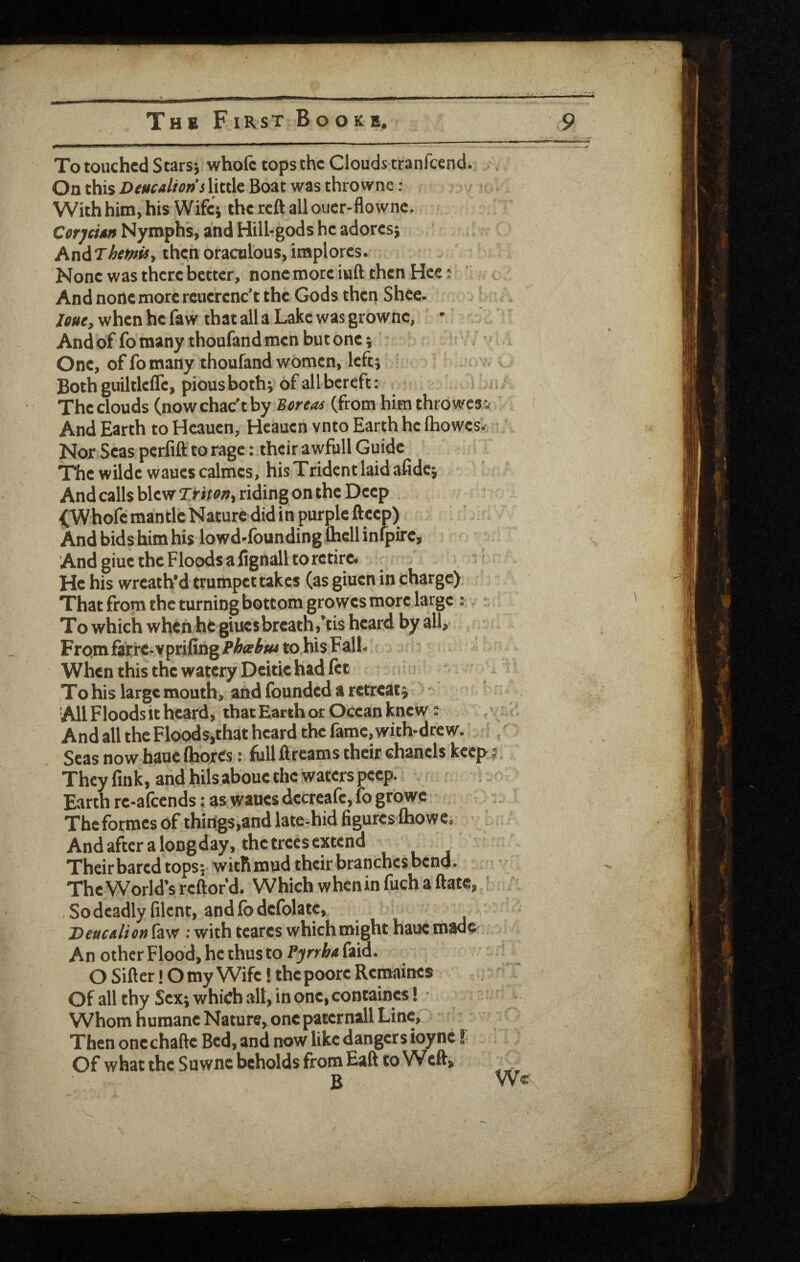 THE FIRST BOOKE, 9
To touched Stars; whose tops the Clouds transcend.
On this Deucalion's little Boat was throwne:
With him, his Wife; the rest all ouer-flowne.
Corycian Nymphs, and Hill-gods he adores;
And Themis, then oraculous, implores.
None was there better, none more iust then Hee:
And none more reuerenc't the Gods then Shee.
Ioue, when he saw that all a Lake was growne,
And of so many thousand men but one;
One, of so many thousand women, left;
Both guiltlesse, pious both; of all bereft:
The clouds (now chac't by Boreas) from him throwes:
And Earth to Heauen, Heauen vnto Earth he showes.
Nor Seas persist to rage: their awfull Guide
The wilde waues calmes, his Trident laid aside;
And calls blew Triton, riding on the Deep
(Whose mantle Nature did in purple steep)
And bids him his lowd-sounding shell inspire,
And giue the Floods a signall to retire.
He his wreath'd trumpet takes (as giuen in charge)
That from the turning bottom growes more large:
To which when he giues breath, 'tis heard by all,
From farre-vprising Phœbus to his Fall.
When this the watery Deitie had set
To his large mouth, and sounded a retreat;
All Floods it heard, that Earth or Ocean knew:
And all the Floods, that heard the same, with-drew.
Seas now haue shores: full streams their chanels keep:
They sink, and hils aboue the waters peep.
Earth re-ascends: as waues decrease, so growe
The formes of things, and late-hid figures showe.
And after a long day, the trees extend
Their bared tops; with mud their branches bend.
The World's restor'd. Which when in such a state,
So deadly silent, and so desolate,
Deucalion saw: with teares which might haue made
An other Flood, he thus to Pyrrha said.
O Sister! O my Wife! the poore Remaines
Of all thy Sex; which all, in one, containes!
Whom humane Nature, one paternall Line,
Then one chaste Bed, and now like dangers ioyne!
Of what the Sunne beholds from East to West,
B We